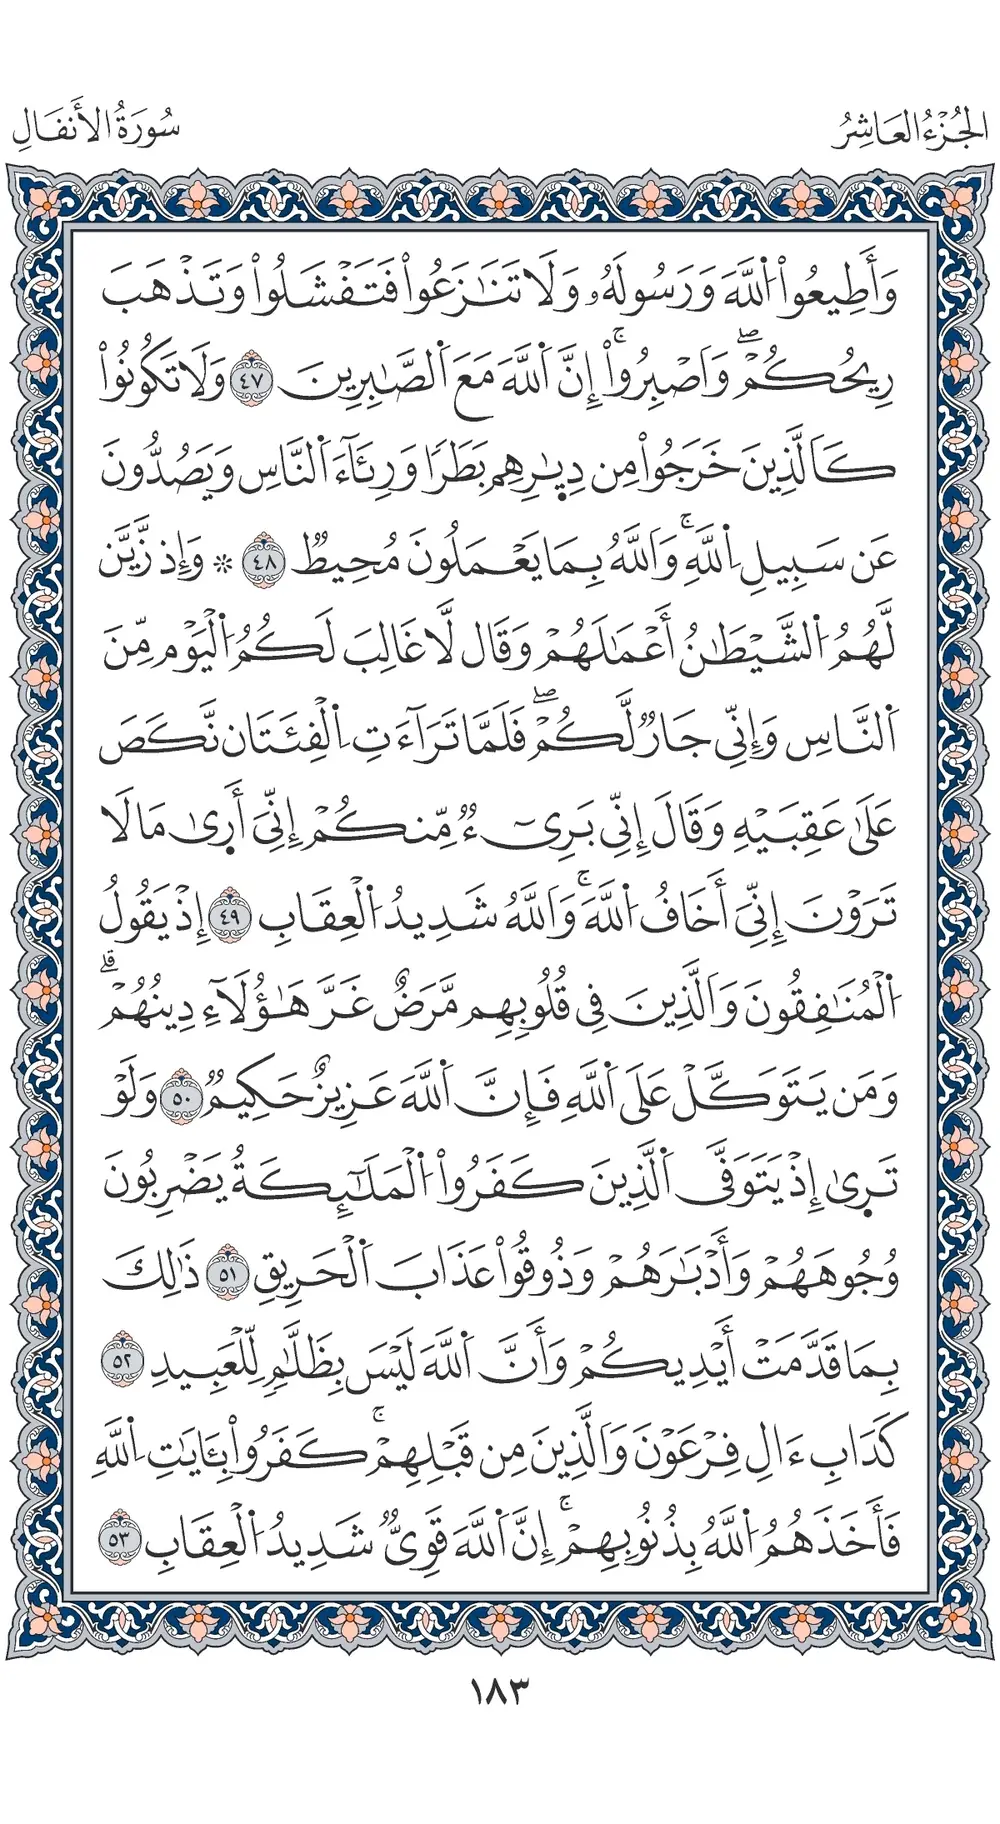 الجُزْءُ العَاشِرُ
سُورَةُ الأَنفَالِ
وَأَطِيعُواْ اُللَّهَ وَرَسُولَهُۥ وَلَا تَنَٰزَعُواْ فَتَفْشَلُواْ وَتَذْهَبَ
رِيحُكُمْۖ وَاَصْبِرُواْۚ إِنَّ اَللَّهَ مَعَ اَلصَّٰبِرِينَ ٤٧ وَلَا تَكُونُواْ
كَاَلَّذِينَ خَرَجُواْ مِن دِيٰ۪رِهِم بَطَرٗا وَرِئَآءَ اَلنَّاسِ وَيَصُدُّونَ
عَن سَبِيلِ اِللَّهِۚ وَاَللَّهُ بِمَا يَعْمَلُونَ مُحِيطٞ ٤٨ ۞ وَإِذ زَّيَّنَ
لَّهُمُ اُلشَّيْطَٰنُ أَعْمَٰلَهُمْ وَقَال لَّا غَالِبَ لَكُمُ اُلْيَوْم مِّنَ
اَلنَّاسِ وَإِنِّي جَارٞ لَّكُمْۖ فَلَمَّا تَرَآءَتِ اِلْفِئَتَان نَّكَصَ
عَلَىٰ عَقِبَيْهِ وَقَالَ إِنِّي بَرِيٓءٞ مِّنكُمْ إِنِّيَ أَر۪ىٰ مَا لَا
تَرَوْنَ إِنِّيَ أَخَافُ اُللَّهَۚ وَاَللَّهُ شَدِيدُ اُلْعِقَابِ ٤٩ إِذْ يَقُولُ
اُلْمُنَٰفِقُونَ وَاَلَّذِينَ فِي قُلُوبِهِم مَّرَضٌ غَرَّ هَٰٓؤُلَآءِ دِينُهُمْۗ
وَمَن يَتَوَكَّلْ عَلَى اَللَّهِ فَإِنَّ اَللَّهَ عَزِيزٌ حَكِيمٞ ٥٠ وَلَوْ
تَر۪ىٰ إِذْ يَتَوَفَّى اَلَّذِينَ كَفَرُواْ اُلْمَلَٰٓئِكَةُ يَضْرِبُونَ
وُجُوهَهُمْ وَأَدْبَٰرَهُمْ وَذُوقُواْ عَذَابَ اَلْحَرِيقِ ٥١ ذَٰلِكَ
بِمَا قَدَّمَتْ أَيْدِيكُمْ وَأَنَّ اَللَّهَ لَيْسَ بِظَلَّٰمٖ لِّلْعَبِيدِ ٥٢
كَدَابِ ءَالِ فِرْعَوْنَ وَاَلَّذِينَ مِن قَبْلِهِمْۚ كَفَرُواْ بِـَٔايَٰتِ اِللَّهِ
فَأَخَذَهُمُ اُللَّهُ بِذُنُوبِهِمْۚ إِنَّ اَللَّهَ قَوِيّٞ شَدِيدُ اُلْعِقَابِ ٥٣
١٨٣